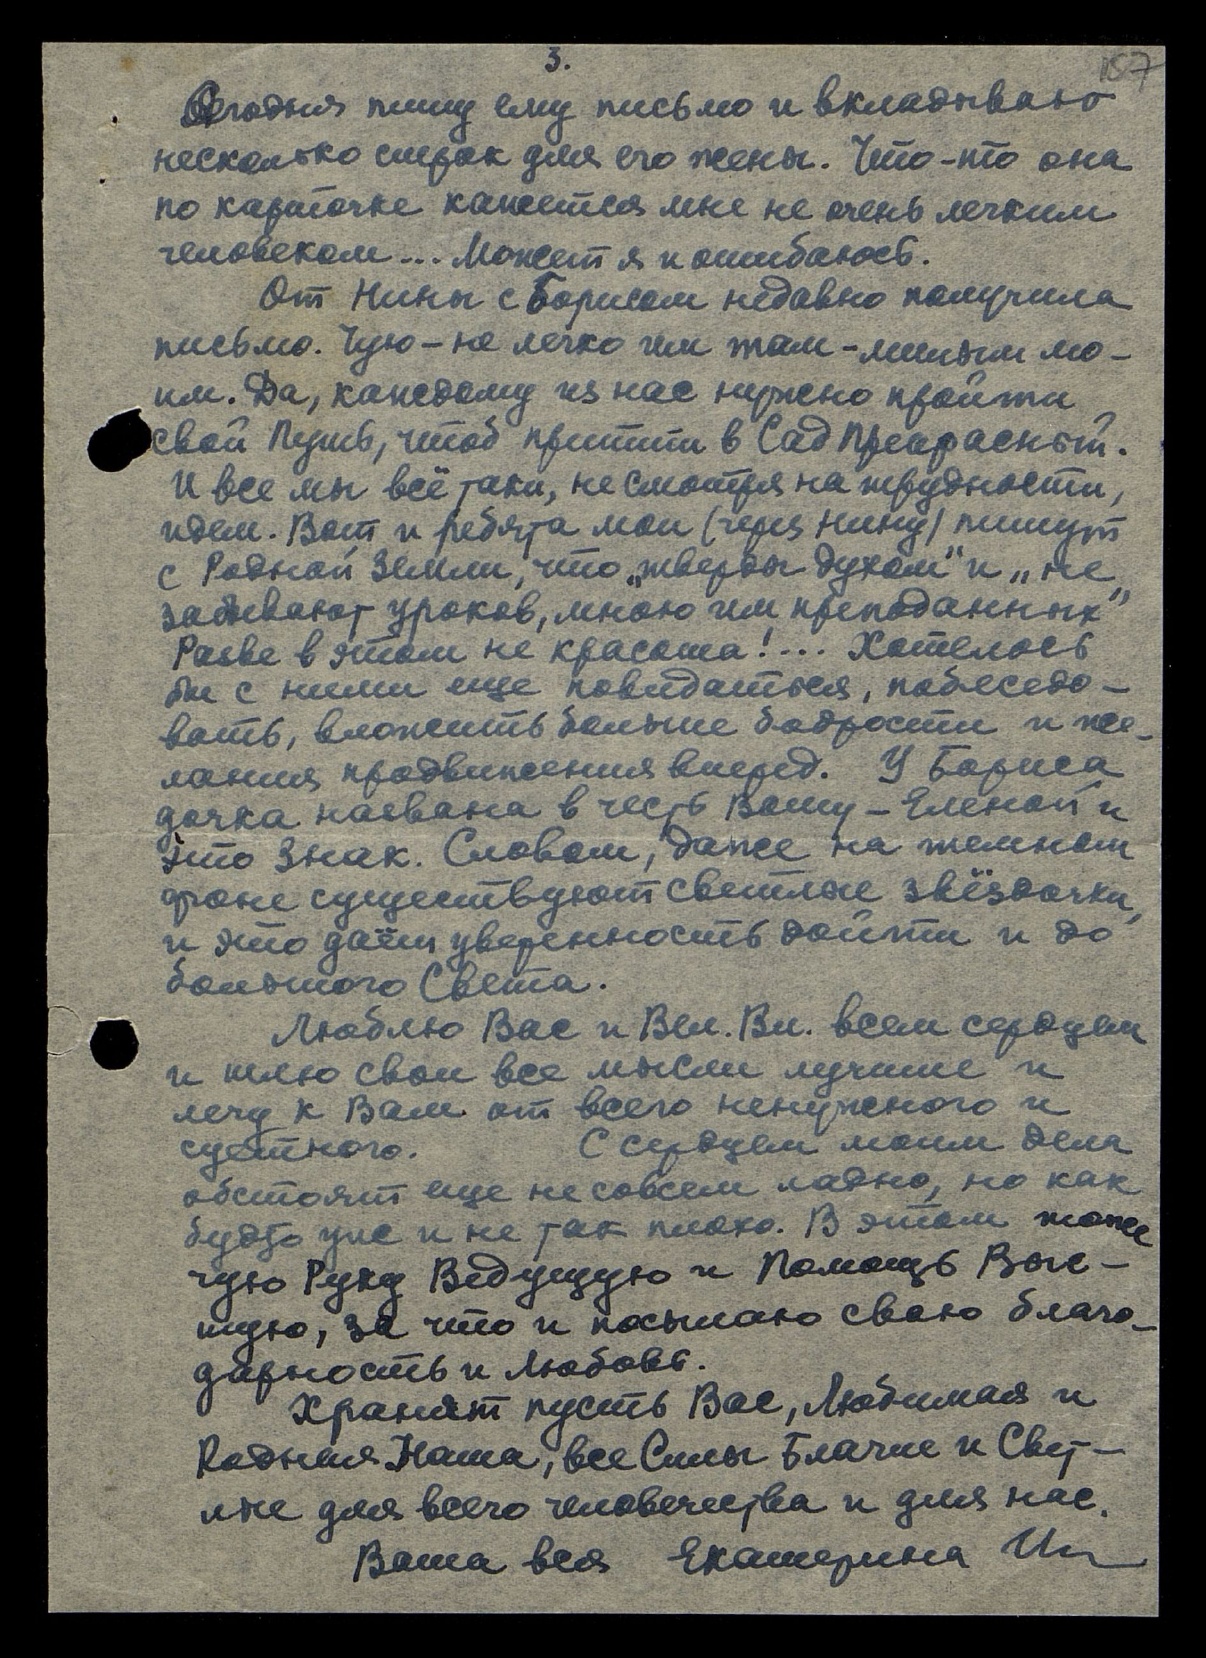 3.
157
Сегодня пишу ему письмо и вкладываю
несколько строк для его жены. Что-то она
по карточке кажется мне не очень легким
человеком... Может я и ошибаюсь.
От Нины с Борисом недавно получила
письмо. Чую – не легко им там – милым мо-
им. Да, каждому из нас нужно пройти
свой Путь, чтоб притти в Сад Прекрасный.
И все мы всё таки, не смотря на трудности,
идем. Вот и ребята мои (через Нину) пишут
с Родной Земли, что „тверды духом" и „не
забывают уроков, мною им преподанных"
Разве в этом не красота!... Хотелось
бы с ними еще повидаться, побеседо-
вать, вложить больше бодрости и же-
лания продвижения вперед. У Бориса
дочка названа в честь Вашу – Еленой и
это Знак. Словом, даже на темном
фоне существуют светлые звёздочки,
и это даёт уверенность дойти и до
большого Света.
Люблю Вас и Вел. Вл. всем сердцем
и шлю свои все мысли лучшие и
лечу к Вам от всего ненужного и
суетного. С сердцем моим дела
обстоят еще не совсем ладно, но как
будто уже и не так плохо. В этом тоже
чую Руку Ведущую и Помощь Выс-
шую, за что и посылаю свою благо-
дарность и любовь.
Хранят пусть Вас, Любимая и
Родная Наша, все Силы Благие и Свет-
лые для всего человечества и для нас.
Ваша вся Екатерина